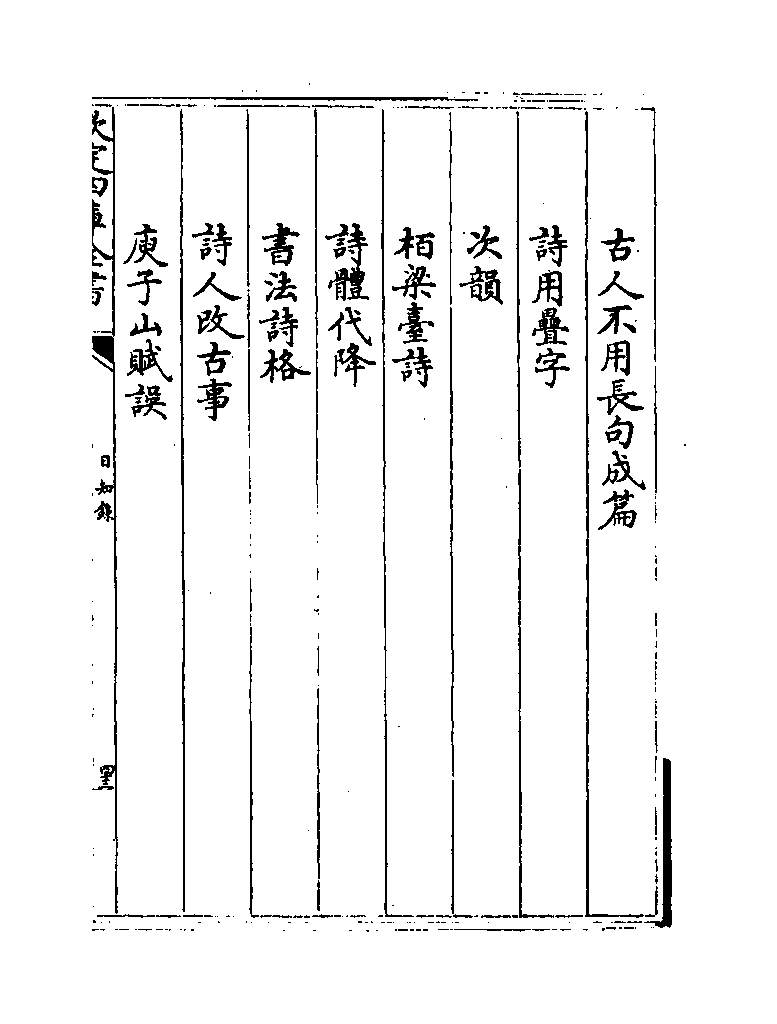 古人不用長句成篇
詩用疊字
次韻
栢梁臺詩
詩體代降
書法詩格
詩人改古事
庾子山賦誤
欽定四庫全書
日知錄